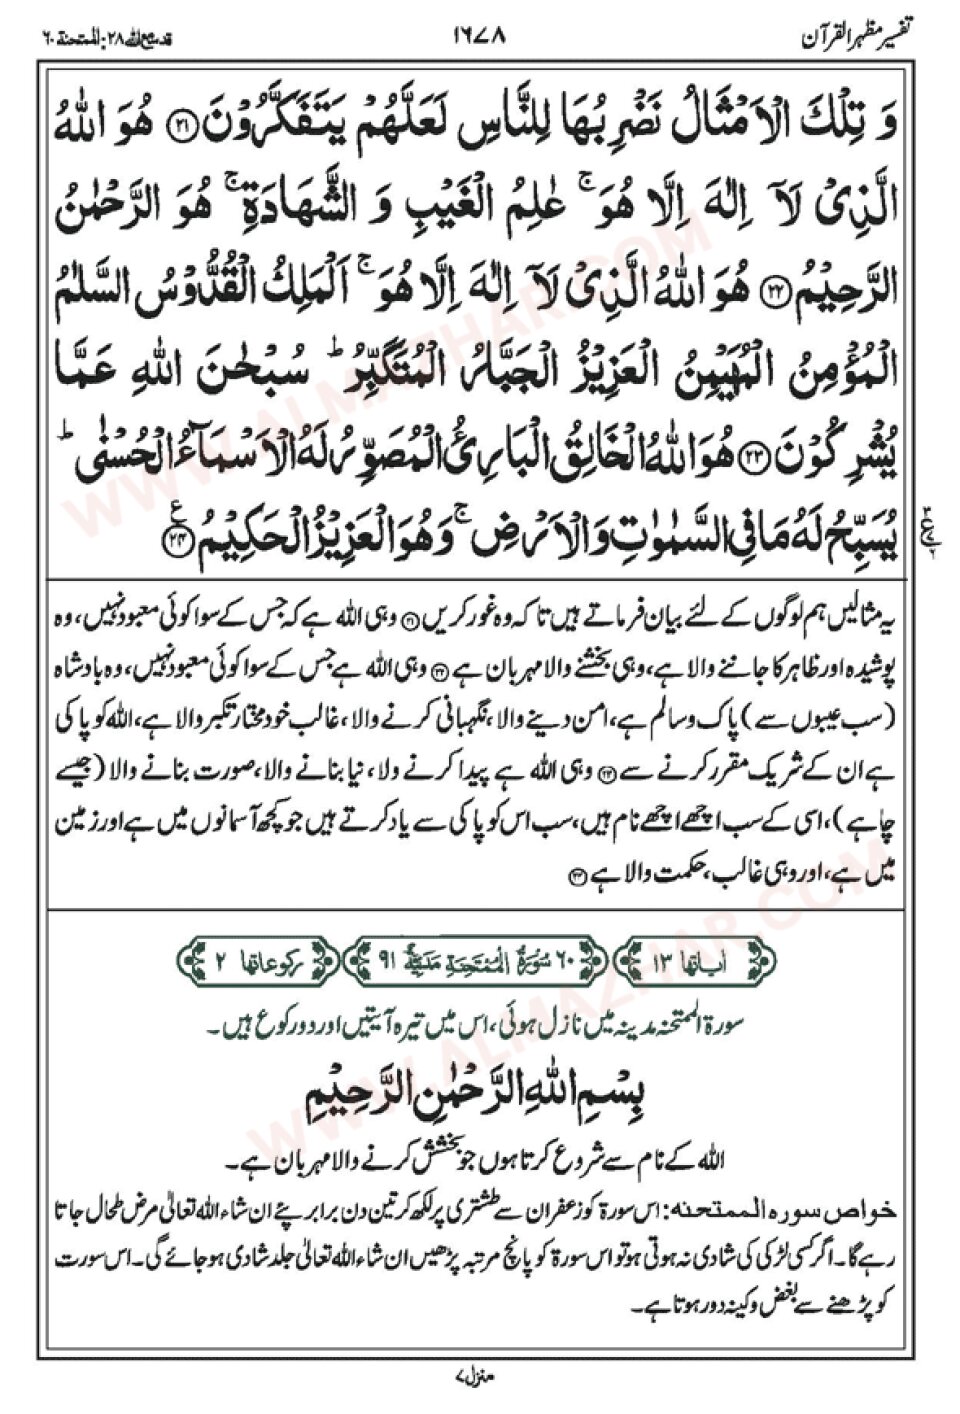 تفسیر مظہر القرآن
۱۶۷۸
قد سمع اللہ ۲۸: الممتحنۃ ۶۰
وَ تِلْكَ الْاَمْثَالُ نَضْرِبُهَا لِلنَّاسِ لَعَلَّهُمْ یَتَفَكَّرُوْنَ ﴿۲۱﴾ هُوَ اللّٰهُ
الَّذِیْ لَاۤ اِلٰهَ اِلَّا هُوَ ۚ عٰلِمُ الْغَیْبِ وَ الشَّهَادَةِ ۚ هُوَ الرَّحْمٰنُ
الرَّحِیْمُ ﴿۲۲﴾ هُوَ اللّٰهُ الَّذِیْ لَاۤ اِلٰهَ اِلَّا هُوَ ۚ اَلْمَلِكُ الْقُدُّوْسُ السَّلٰمُ
الْمُؤْمِنُ الْمُهَیْمِنُ الْعَزِیْزُ الْجَبَّارُ الْمُتَكَبِّرُ ؕ سُبْحٰنَ اللّٰهِ عَمَّا
یُشْرِكُوْنَ ﴿۲۳﴾ هُوَ اللّٰهُ الْخَالِقُ الْبَارِئُ الْمُصَوِّرُ لَهُ الْاَسْمَآءُ الْحُسْنٰی ؕ
یُسَبِّحُ لَهٗ مَا فِی السَّمٰوٰتِ وَ الْاَرْضِ ۚ وَ هُوَ الْعَزِیْزُ الْحَكِیْمُ ﴿۲۴﴾ ع
یہ مثالیں ہم لوگوں کے لئے بیان فرماتے ہیں تاکہ وہ غور کریں ﴿۲۱﴾ وہی اللہ ہے کہ جس کے سوا کوئی معبود نہیں، وہ
پوشیدہ اور ظاہر کا جاننے والا ہے، وہی بخشنے والا مہربان ہے ﴿۲۲﴾ وہی اللہ ہے جس کے سوا کوئی معبود نہیں، وہ بادشاہ
(سب عیبوں سے) پاک و سالم ہے، امن دینے والا، نگہبانی کرنے والا، غالب خود مختار تکبر والا ہے، اللہ کو پاکی
ہے ان کے شریک مقرر کرنے سے ﴿۲۳﴾ وہی اللہ ہے پیدا کرنے ولا، نیا بنانے والا، صورت بنانے والا (جیسے
چاہے)، اسی کے سب اچھے اچھے نام ہیں، سب اس کو پاکی سے یاد کرتے ہیں جو کچھ آسمانوں میں ہے اور زمین
میں ہے، اور وہی غالب، حکمت والا ہے ﴿۲۴﴾
اٰیاتها ۱۳
۶۰ سُوْرَةُ الْمُمْتَحِنَةِ مَدَنِیَّةٌ ۹۱
رکوعاتها ۲
سورۃ الممتحنہ مدینہ میں نازل ہوئی، اس میں تیرہ آیتیں اور دو رکوع ہیں۔
بِسْمِ اللّٰهِ الرَّحْمٰنِ الرَّحِیْمِ
اللہ کے نام سے شروع کرتا ہوں جو بخشش کرنے والا مہربان ہے۔
خواص سورہ الممتحنه: اس سورۃ کو زعفران سے طشتری پر لکھ کر تین دن برابر پئے ان شاء اللہ تعالیٰ مرض طحال جاتا
رہے گا۔ اگر کسی لڑکی کی شادی نہ ہوتی ہو تو اس سورۃ کو پانچ مرتبہ پڑھیں ان شاء اللہ تعالیٰ جلد شادی ہو جائے گی۔ اس سورت
کو پڑھنے سے بغض و کینہ دور ہوتا ہے۔
منزل ۷
WWW.ALMAZHAR.COM
WWW.ALMAZHAR.COM